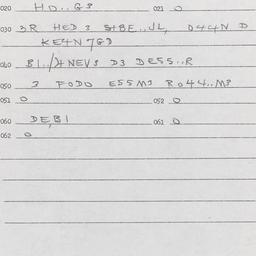 020 HD..G3 021 O
030 3R HED 3 SIBE..JL, D44N D
KE4N7GD
040 BI../4NEVS D3 DESS..R
050 3 FODD ESSM3 RO44..M3
051 O 052 O
060 DE,BI 061 O
062 O